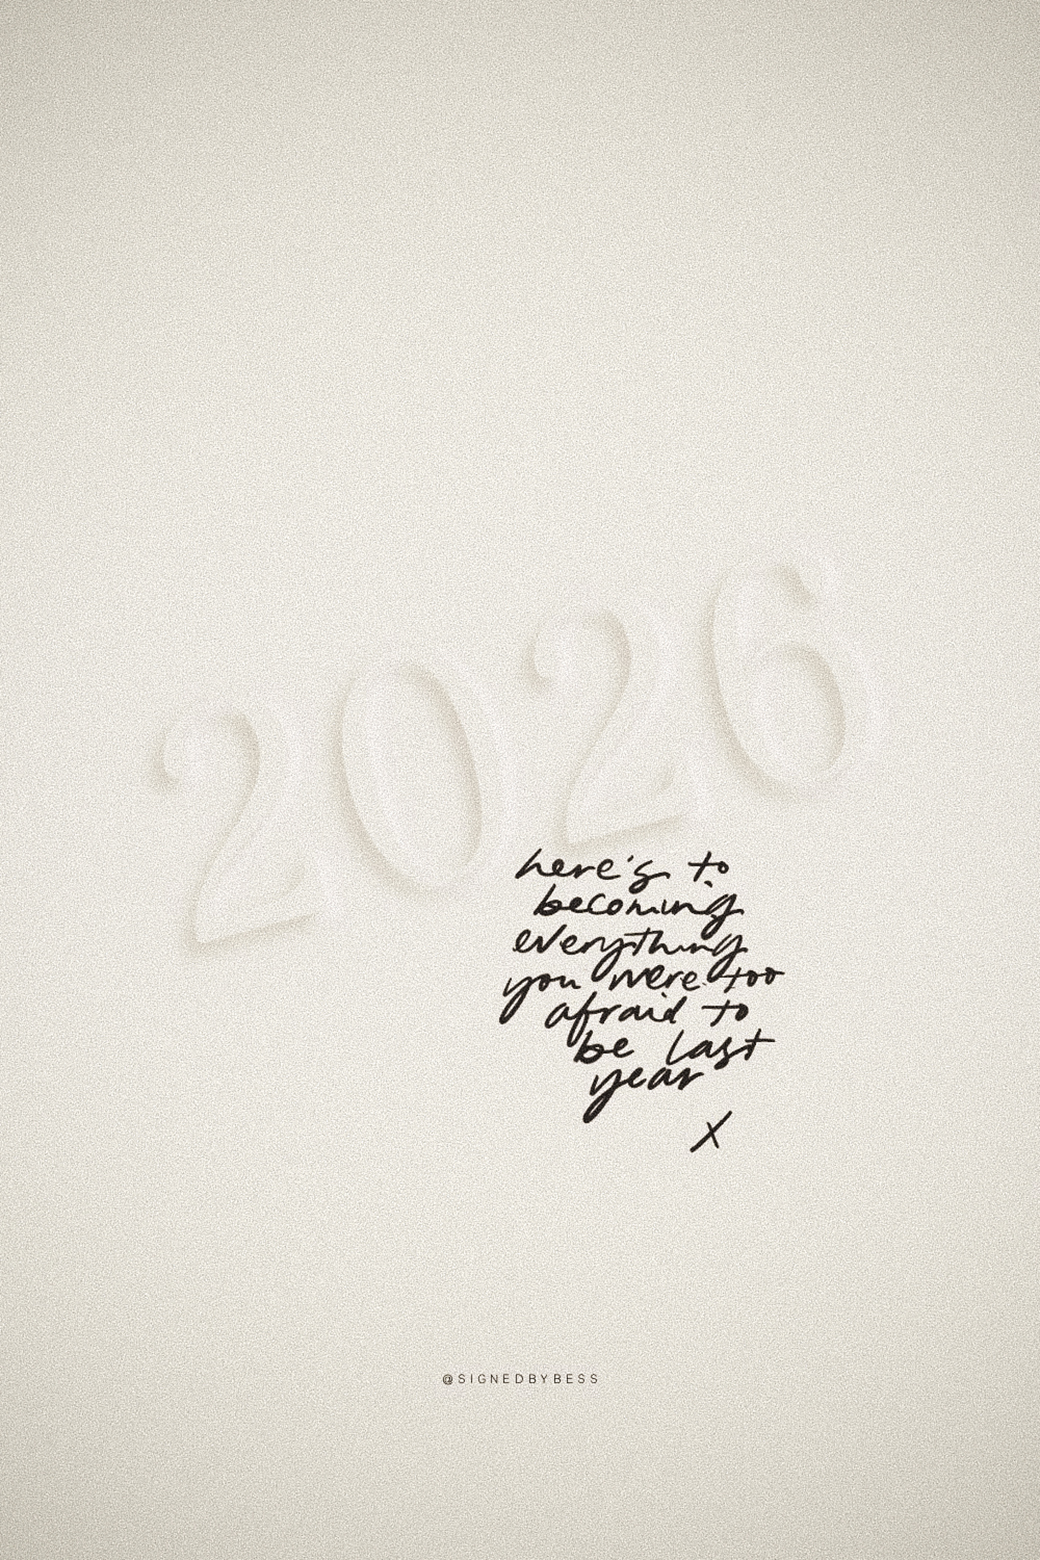 2026
here's to
becoming
everything
you were too
afraid to
be last
year
x
@SIGNEDBYBESS